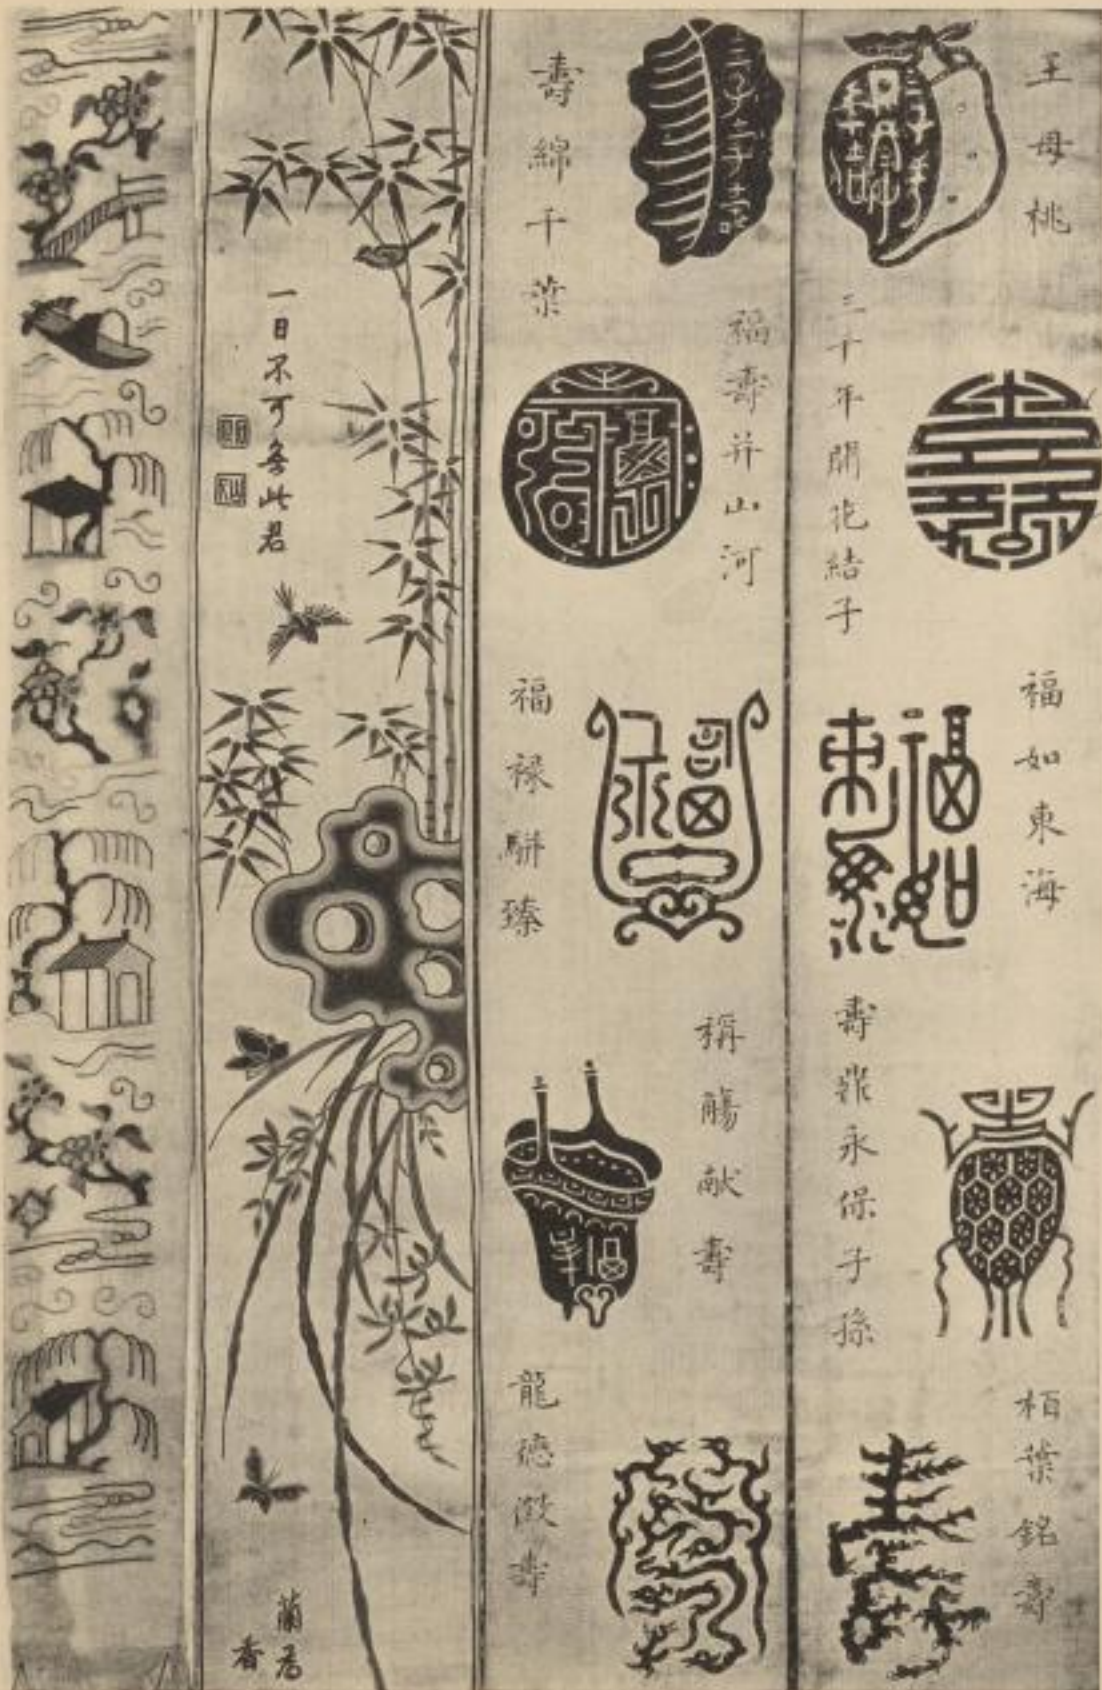 王母桃
三千年開花結子
福如東海
壽鼎永保子孫
栢葉銘壽
壽綿千葉
福壽并山河
福祿駢臻
稱觴献壽
龍德徵壽
一日不可無此君
蘭為
香